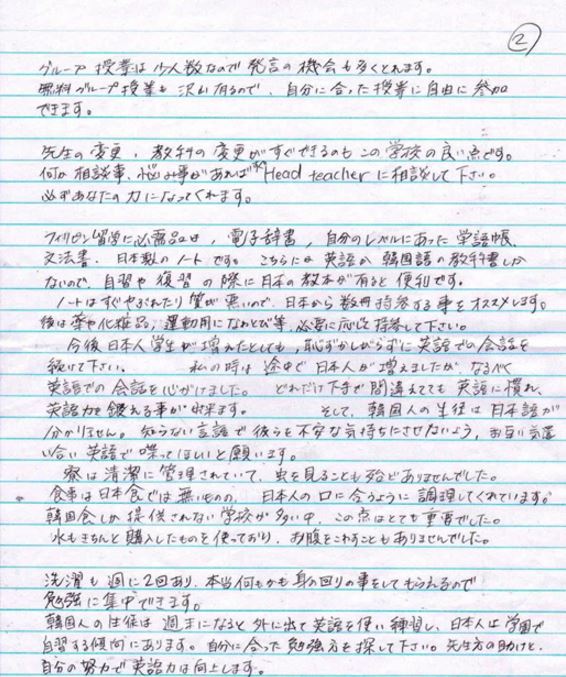 ②
グループ授業は少人数なので発言の機会も多くとれます。
無料グループ授業も沢山有るので、自分に合った授業に自由に参加
できます。
先生の変更、教科の変更がすぐできるのもこの学校の良い点です。
何か相談事、悩み事があれば Head teacher に相談して下さい。
必ずあなたの力になってくれます。
フィリピン留学に必需品は、電子辞書、自分のレベルにあった単語帳、
文法書、日本製のノートです。こちらには英語か韓国語の教科書しか
ないので、自習や復習の際に日本の教本が有ると便利です。
ノートはすぐやぶれたり質が悪いので、日本から数冊持参する事をオススメします。
後は薬や化粧品、運動用になわとび等、必要に応じ持参して下さい。
今後日本人学生が増えたとしても、恥ずかしがらずに英語での会話を
続けて下さい。 私の時は途中で日本人が増えましたが、なるべく
英語での会話を心がけました。 どれだけ下手で間違えてても英語に慣れ、
英語力を鍛える事が出来ます。 そして、韓国人の生徒は日本語が
分かりません。知らない言語で彼らを不安な気持ちにさせないよう、お互い気遣
い合い英語で喋ってほしいと願います。
寮は清潔に管理されていて、虫を見ることも殆どありませんでした。
食事は日本食では無いものの、日本人の口に合うように調理してくれています。
韓国食しか提供されない学校が多い中、この点はとても重要でした。
水もきちんと購入したものを使っており、お腹をこわすこともありませんでした。
洗濯も週に2回あり、本当何もかも身の回りの事をしてもらえるので
勉強に集中できます。
韓国人の生徒は週末になると外に出て英語を使い練習し、日本人は学園で
自習する傾向にあります。自分に合った勉強方を探して下さい。先生方の助けと、
自分の努力で英語力は向上します。